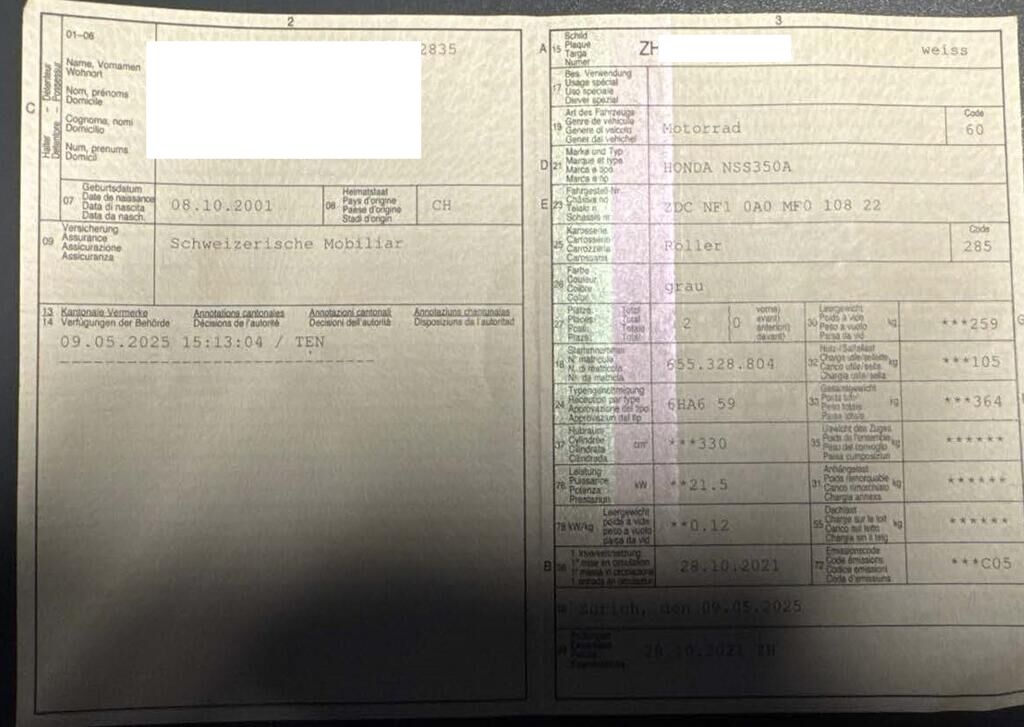 2
01-06
2835
C
Halter - Détenteur
Detentore - Possessur
Name, Vornamen
Wohnort
Nom, prénoms
Domicile
Cognome, nomi
Domicilio
Num, prenums
Domicil
07
Geburtsdatum
Date de naissance
Data di nascita
Data da nasch.
08.10.2001
08
Heimatstaat
Pays d'origine
Paese d'origine
Stadi d'origin
CH
09
Versicherung
Assurance
Assicurazione
Assicuranza
Schweizerische Mobiliar
13 Kantonale Vermerke Annotations cantonales Annotazioni cantonali Annotaziuns chantunalas
14 Verfügungen der Behörde Décisions de l'autorité Decisioni dell'autorità Disposiziuns da l'autoritad
09.05.2025 15:13:04 / TEN
3
A 15
Schild
Plaque
Targa
Numer
ZH
weiss
17
Bes. Verwendung
Usage spécial
Uso speciale
Diever spezial
19
Art des Fahrzeugs
Genre de véhicule
Genere di veicolo
Gener dal vehichel
Motorrad
Code
60
D 21
Marke und Typ
Marque et type
Marca e tipo
Marca e tip
HONDA NSS350A
E 23
Fahrgestell-Nr.
Châssis no
Telaio n.
Schassis nr.
ZDC NF1 0A0 MF0 108 22
25
Karosserie
Carrosserie
Carrozzeria
Carossaria
Roller
Code
285
26
Farbe
Couleur
Colore
Colur
grau
27
Plätze
Places
Posti
Plazs
Total
Total
Totale
Total
2
0
vorne)
avant)
anteriori)
davant)
30
Leergewicht
Poids à vide
Peso a vuoto
Paisa da vid
kg
***259
18
Stammnummer
N° matricule
N. di matricola
Nr. da matricla
655.328.804
32
Nutz-/Sattellast
Charge utile/sellette
Carico utile/sella
Chargia utila/sella
kg
***105
24
Typengenehmigung
Réception par type
Approvazione del tipo
Approvaziun dal tip
6HA6 59
33
Gesamtgewicht
Poids total
Peso totale
Paisa totala
kg
***364
37
Hubraum
Cylindrée
Cilindrata
Cilindrada
cm³
***330
35
Gewicht des Zuges
Poids de l'ensemble
Peso del convoglio
Paisa cumposiziun
kg
******
76
Leistung
Puissance
Potenza
Prestaziun
kW
**21.5
31
Anhängelast
Poids remorquable
Carico rimorchiato
Chargia annexa
kg
******
78 kW/kg
Leergewicht
poids à vide
peso a vuoto
paisa da vid
**0.12
55
Dachlast
Charge sur le toit
Carico sul tetto
Chargia sin il tetg
kg
******
B 36
1. Inverkehrsetzung
1re mise en circulation
1a messa in circolazione
1. entrada en circulaziun
28.10.2021
72
Emissionscode
Code émissions
Codice emissioni
Code d'emissiuns
***C05
Zürich, den 09.05.2025
28.10.2021 ZH